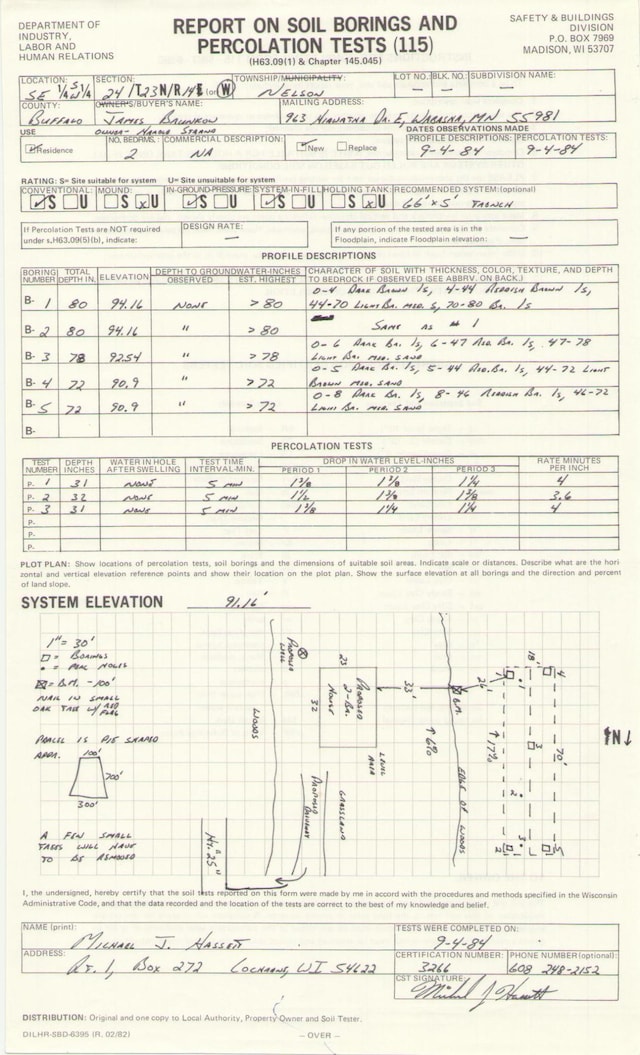 DEPARTMENT OF
INDUSTRY,
LABOR AND
HUMAN RELATIONS
REPORT ON SOIL BORINGS AND
PERCOLATION TESTS (115)
(H63.09(1) & Chapter 145.045)
SAFETY & BUILDINGS
DIVISION
P.O. BOX 7969
MADISON, WI 53707
LOCATION: SECTION: TOWNSHIP/MUNICIPALITY: LOT NO.: BLK. NO.: SUBDIVISION NAME:
SE 1/4 SW 1/4 24 /T23N/R/4E (or) W NELSON — — —
COUNTY: OWNER'S/BUYER'S NAME: MAILING ADDRESS:
BUFFALO JAMES BRUNKOW 963 HIAWATHA DR. E, WABASHA, MN 55981
USE OWNER- HAROLD STRAND DATES OBSERVATIONS MADE
Residence NO. BEDRMS.: COMMERCIAL DESCRIPTION: New Replace PROFILE DESCRIPTIONS: PERCOLATION TESTS:
2 NA 9-4-84 9-4-84
RATING: S= Site suitable for system U= Site unsuitable for system
CONVENTIONAL: MOUND: IN-GROUND-PRESSURE: SYSTEM-IN-FILL HOLDING TANK: RECOMMENDED SYSTEM: (optional)
S U S U S U S U S U 66' x 5' TRENCH
If Percolation Tests are NOT required
under s.H63.09(5)(b), indicate:
DESIGN RATE:
—
If any portion of the tested area is in the
Floodplain, indicate Floodplain elevation: —
PROFILE DESCRIPTIONS
BORING NUMBER TOTAL DEPTH IN. ELEVATION DEPTH TO GROUNDWATER-INCHES OBSERVED EST. HIGHEST CHARACTER OF SOIL WITH THICKNESS, COLOR, TEXTURE, AND DEPTH
TO BEDROCK IF OBSERVED (SEE ABBRV. ON BACK.)
0-4 DARK BROWN ls, 4-44 REDDISH BROWN ls,
B- 1 80 94.16 NONE >80 44-70 LIGHT BR. MED. S, 70-80 BR. ls
B- 2 80 94.16 " >80 SAME AS # 1
0-6 DARK BR. ls, 6-47 RED. BR. ls, 47-78
B- 3 78 92.54 " >78 LIGHT BR. MED. SAND
0-5 DARK BR. ls, 5-44 RED. BR. ls, 44-72 LIGHT
B- 4 72 90.9 " >72 BROWN MED. SAND
0-8 DARK BR. ls, 8-46 REDISH BR. ls, 46-72
B- 5 72 90.9 " >72 LIGHT BR. MED SAND
B-
PERCOLATION TESTS
TEST NUMBER DEPTH INCHES WATER IN HOLE AFTER SWELLING TEST TIME INTERVAL-MIN. DROP IN WATER LEVEL-INCHES PERIOD 1 PERIOD 2 PERIOD 3 RATE MINUTES PER INCH
P- 1 31 NONE 5 MIN 1 3/8 1 3/8 1 1/4 4
P- 2 32 NONE 5 MIN 1 1/2 1 3/8 1 3/8 3.6
P- 3 31 NONE 5 MIN 1 3/8 1 1/4 1 1/4 4
P-
P-
P-
PLOT PLAN: Show locations of percolation tests, soil borings and the dimensions of suitable soil areas. Indicate scale or distances. Describe what are the hori
zontal and vertical elevation reference points and show their location on the plot plan. Show the surface elevation at all borings and the direction and percent
of land slope.
SYSTEM ELEVATION 91.16'
1" = 30'
= BORINGS
= PERC HOLES
= B.M. - 100'
NAIL IN SMALL
OAK TREE W/ RED
FLAG
PARCEL IS PIE SHAPED
APPX.
100'
700'
300'
A FEW SMALL
TREES WILL HAVE
TO BE REMOVED
WOODS
Hy. "25"
PROPOSED
WELL
23
32
PROPOSED
2-BR.
HOUSE
PROPOSED
DRIVEWAY
GRASSLAND
LEVEL
AREA
33'
6%
B.M.
EDGE OF WOODS
26'
17%
18'
70'
1
4
3
2
3
2
5
N
I, the undersigned, hereby certify that the soil tests reported on this form were made by me in accord with the procedures and methods specified in the Wisconsin
Administrative Code, and that the data recorded and the location of the tests are correct to the best of my knowledge and belief.
NAME (print): TESTS WERE COMPLETED ON:
MICHAEL J. HASSETT 9-4-84
ADDRESS: CERTIFICATION NUMBER: PHONE NUMBER (optional):
RT. 1, BOX 272 COCHRANE, WI 54622 3266 608 248-2152
CST SIGNATURE:
Michael J Hassett
DISTRIBUTION: Original and one copy to Local Authority, Property Owner and Soil Tester.
DILHR-SBD-6395 (R. 02/82)
— OVER —